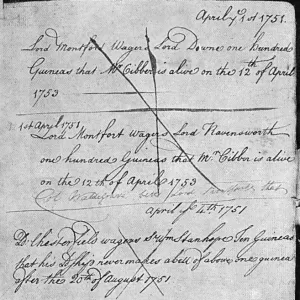 April ye 1st 1751.
Lord Montfort Wagers Lord Downe one Hundred
Guineas that Mr Cibber is alive on the 12th of April
1753
1st April 1751.
Lord Montfort wagers Lord Ravensworth
one hundred Guineas that Mr Cibber is alive
on the 12th of April 1753
April ye 4th 1751
Ld Chesterfield wagers Sr Wm Stanhope Ten Guineas
that his Ldship never makes a bett of above one guinea
after the 20th of August 1751